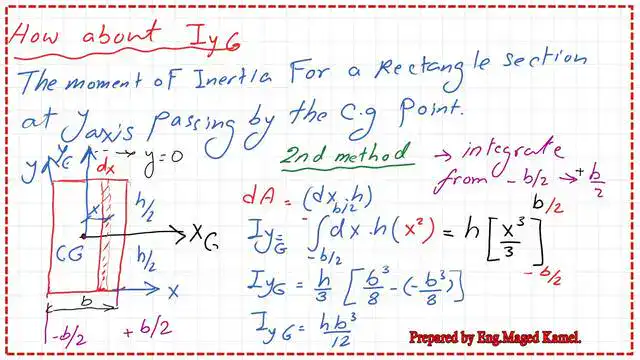 How about IyG
The moment of Inertia For a Rectangle section
at yaxis Passing by the C.g Point.
y yG → y=0
dx
2nd method → integrate
from -b/2 → +b/2
dA = (dx.h)
x h/2
CG XG
h/2
x
b
-b/2 +b/2
IyG = ∫ -b/2 b/2 dx.h (x²) = h [x³/3] b/2 -b/2
IyG = h/3 [b³/8 - (-b³/8)]
IyG = hb³/12
Prepared by Eng.Maged Kamel.